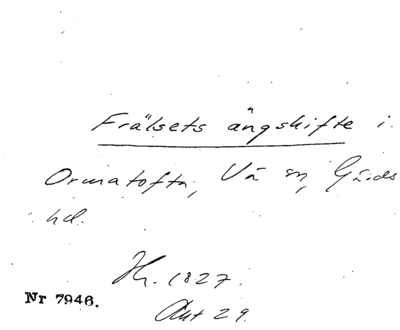 Frälsets ängskifte i
Ormatofta, Vä sn, Gärds
hd.
Hr. 1827.
Nr 7946.
Akt 29.